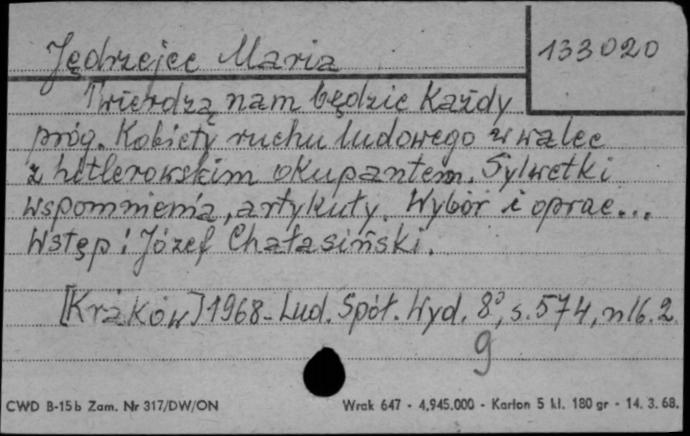 Jędrzejec Maria
133020
Twierdzą nam będzie Każdy
próg. Kobiety ruchu ludowego w walce
z hitlerowskim okupantem. Sylwetki
wspomnienia, artykuły. Wybór i oprac...
Wstęp: Józef Chałasiński.
[Kraków] 1968. Lud. Spół. Wyd. 8°, s. 574, nlb. 2.
g
CWD B-15b Zam. Nr 317/DW/ON
Wrak 647 - 4.945.000 - Karton 5 kl. 180 gr - 14. 3. 68.